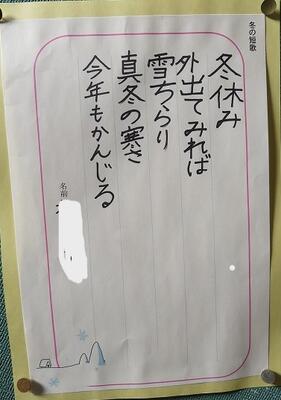 冬の短歌
冬休み
外出てみれば
雪ちらり
真冬の寒さ
今年もかんじる
名前